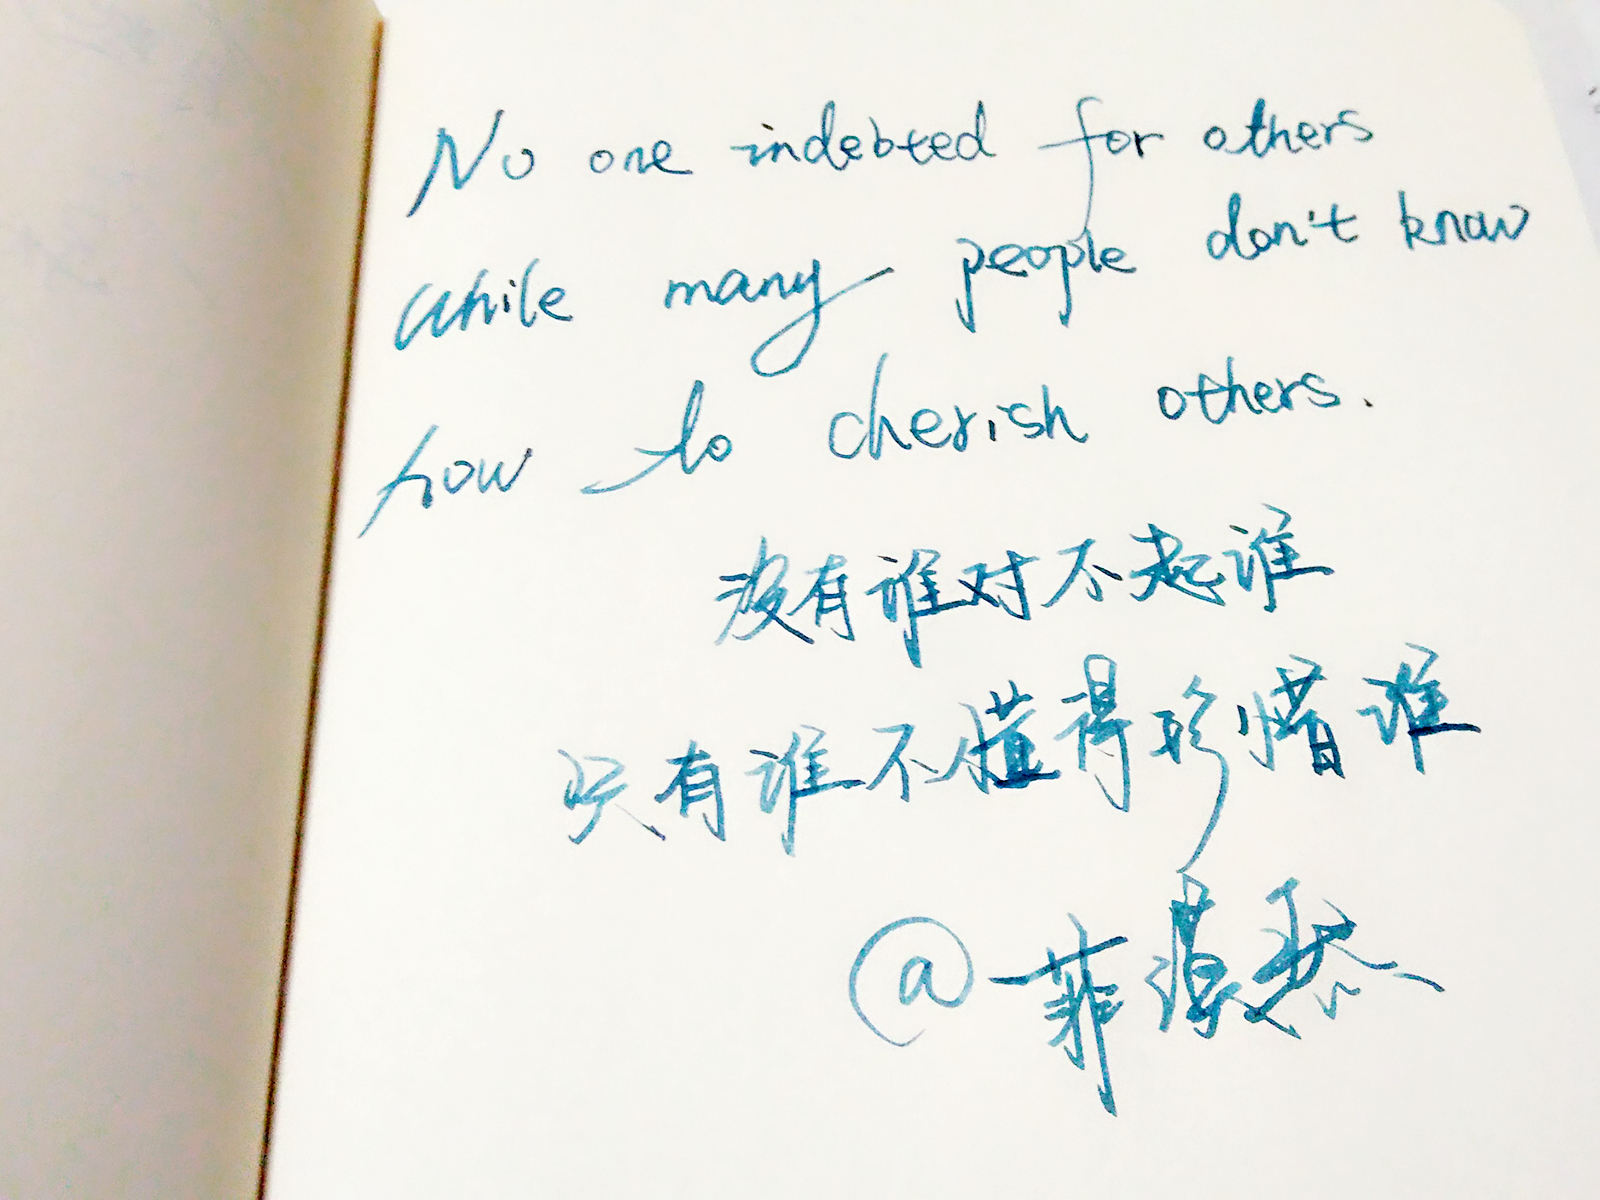 No one indebted for others
while many people don't know
how to cherish others.
没有谁对不起谁
只有谁不懂得珍惜谁
@菲漠